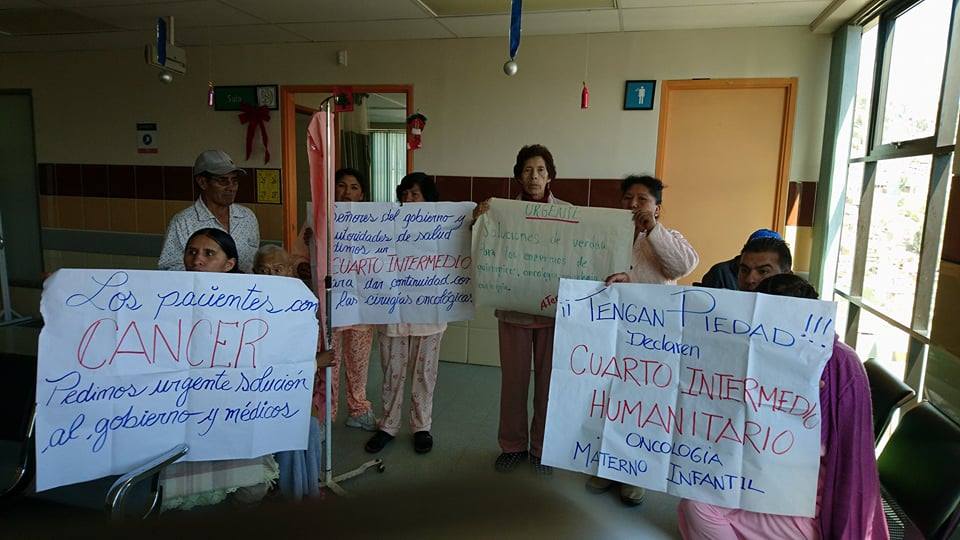 Sala
Los pacientes con
CANCER
Pedimos urgente solución
al gobierno y médicos
eñores del gobierno y
utoridades de salud
dimos un
CUARTO INTERMEDIO
ra dar continuidad con
las cirugías oncológicas
URGENTE
Soluciones de verdad
para los enfermos de
¡¡TENGAN PIEDAD!!!
Declaren
CUARTO INTERMEDIO
HUMANITARIO
ONCOLOGIA
MATERNO INFANTIL